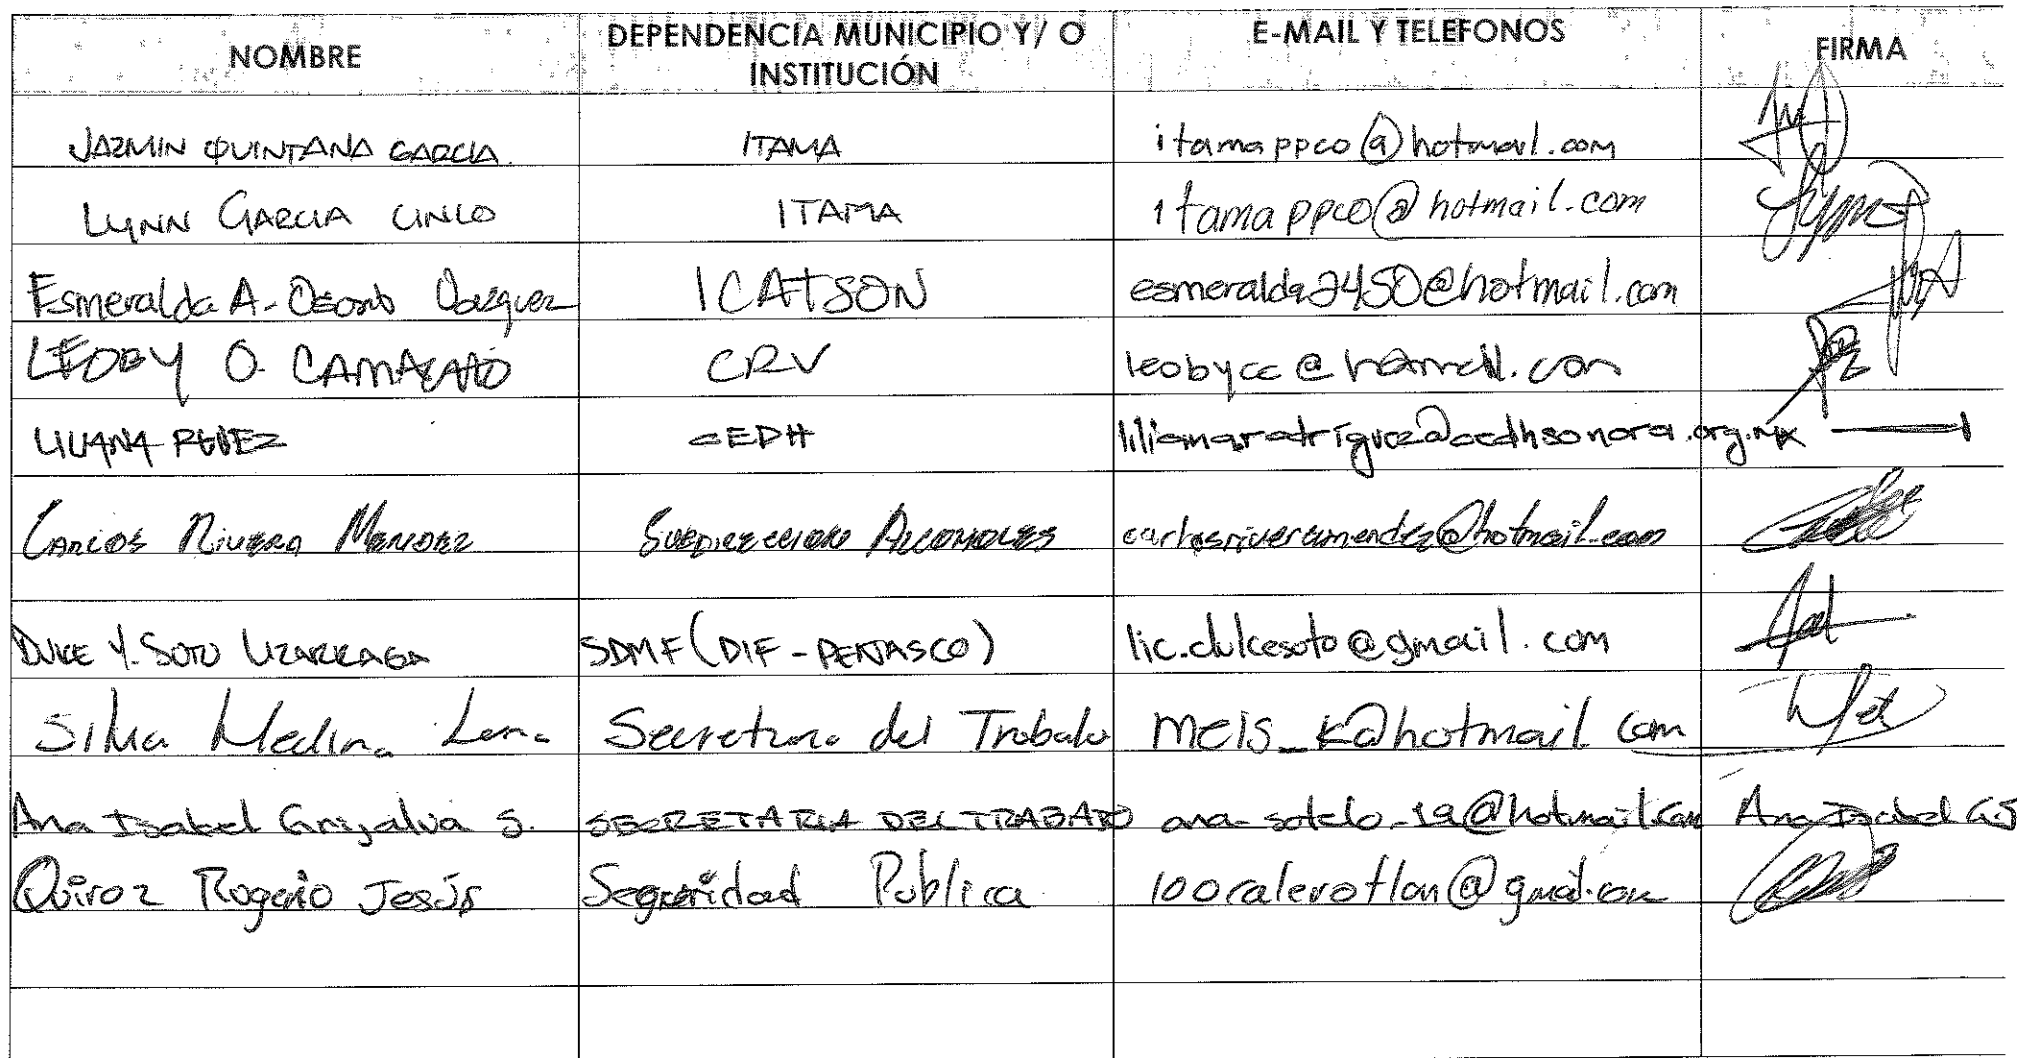 NOMBRE DEPENDENCIA MUNICIPIO Y/ O INSTITUCIÓN E-MAIL Y TELEFONOS FIRMA
JAZMIN QUINTANA GARCIA ITAMA itamappco@hotmail.com
LYNN GARCIA ITAMA itamappco@hotmail.com
Esmeralda A. Osorio Vazquez ICATSON esmeralda2450@hotmail.com
LEOBY O. CAMACHO CRV leobycc@hotmail.com
LILIANA CEDH
CARLOS RIVERA MENDEZ SUBDIRECCION ALCOHOLES carlosriveramendez@hotmail.com
DULCE Y. SOTO LIZARRAGA SDMF (DIF-PEÑASCO) lic.dulcesoto@gmail.com
Silvia Medina Secretaria del Trabajo meis_k@hotmail.com
Ana Isabel Grijalva S. SECRETARIA DEL TRABAJO ana-sotelo-19@hotmail.com Ana Isabel G.S
Quiroz Rogerio Jesús Seguridad Publica